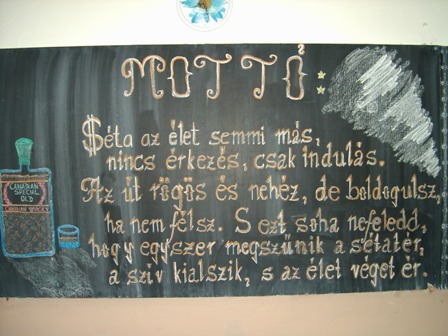 MOTTÓ:
Séta az élet semmi más,
nincs érkezés, csak indulás.
Az út rögös és nehéz, de boldogulsz,
ha nem félsz. S ezt soha nefeledd,
hogy egyszer megszűnik a sétatér,
a szív kialszik, s az élet véget ér.
CANADIAN
SPECIAL
OLD